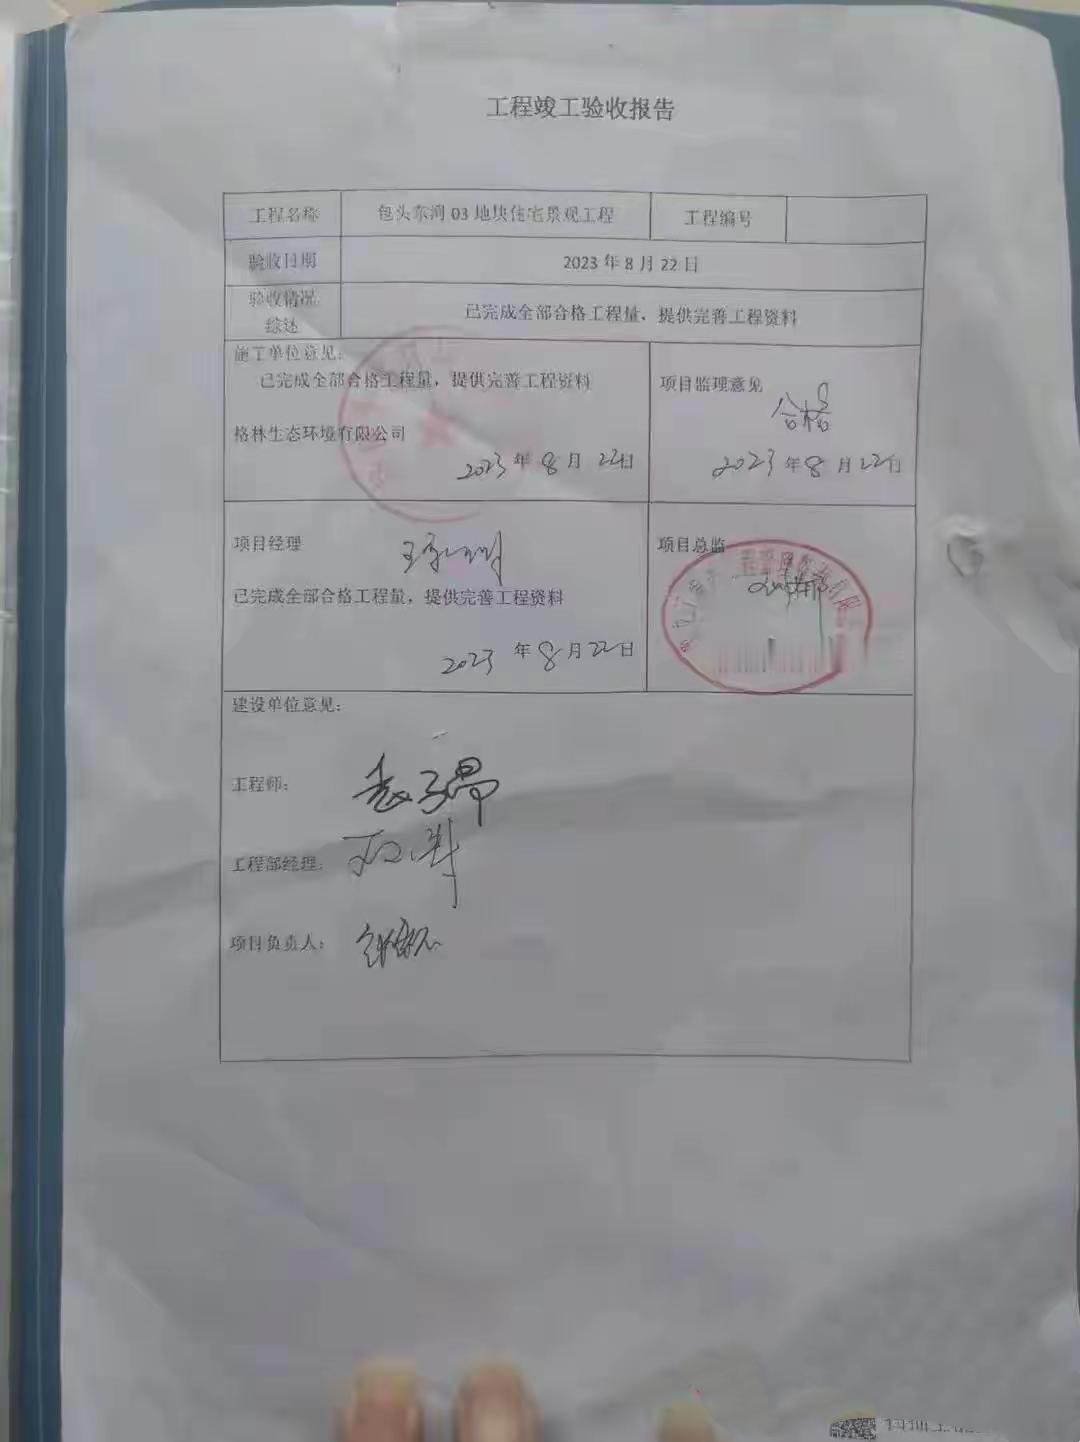 工程竣工验收报告
工程名称 包头东河 03 地块住宅景观工程 工程编号
验收日期 2023 年 8 月 22 日
验收情况
综述
已完成全部合格工程量，提供完善工程资料
施工单位意见：
已完成全部合格工程量，提供完善工程资料
格林生态环境有限公司
2023 年 8 月 22日
项目监理意见
合格
2023 年 8 月 22日
项目经理
已完成全部合格工程量，提供完善工程资料
2023 年 8 月 22日
项目总监
建设单位意见：
工程师：
工程部经理：
项目负责人：